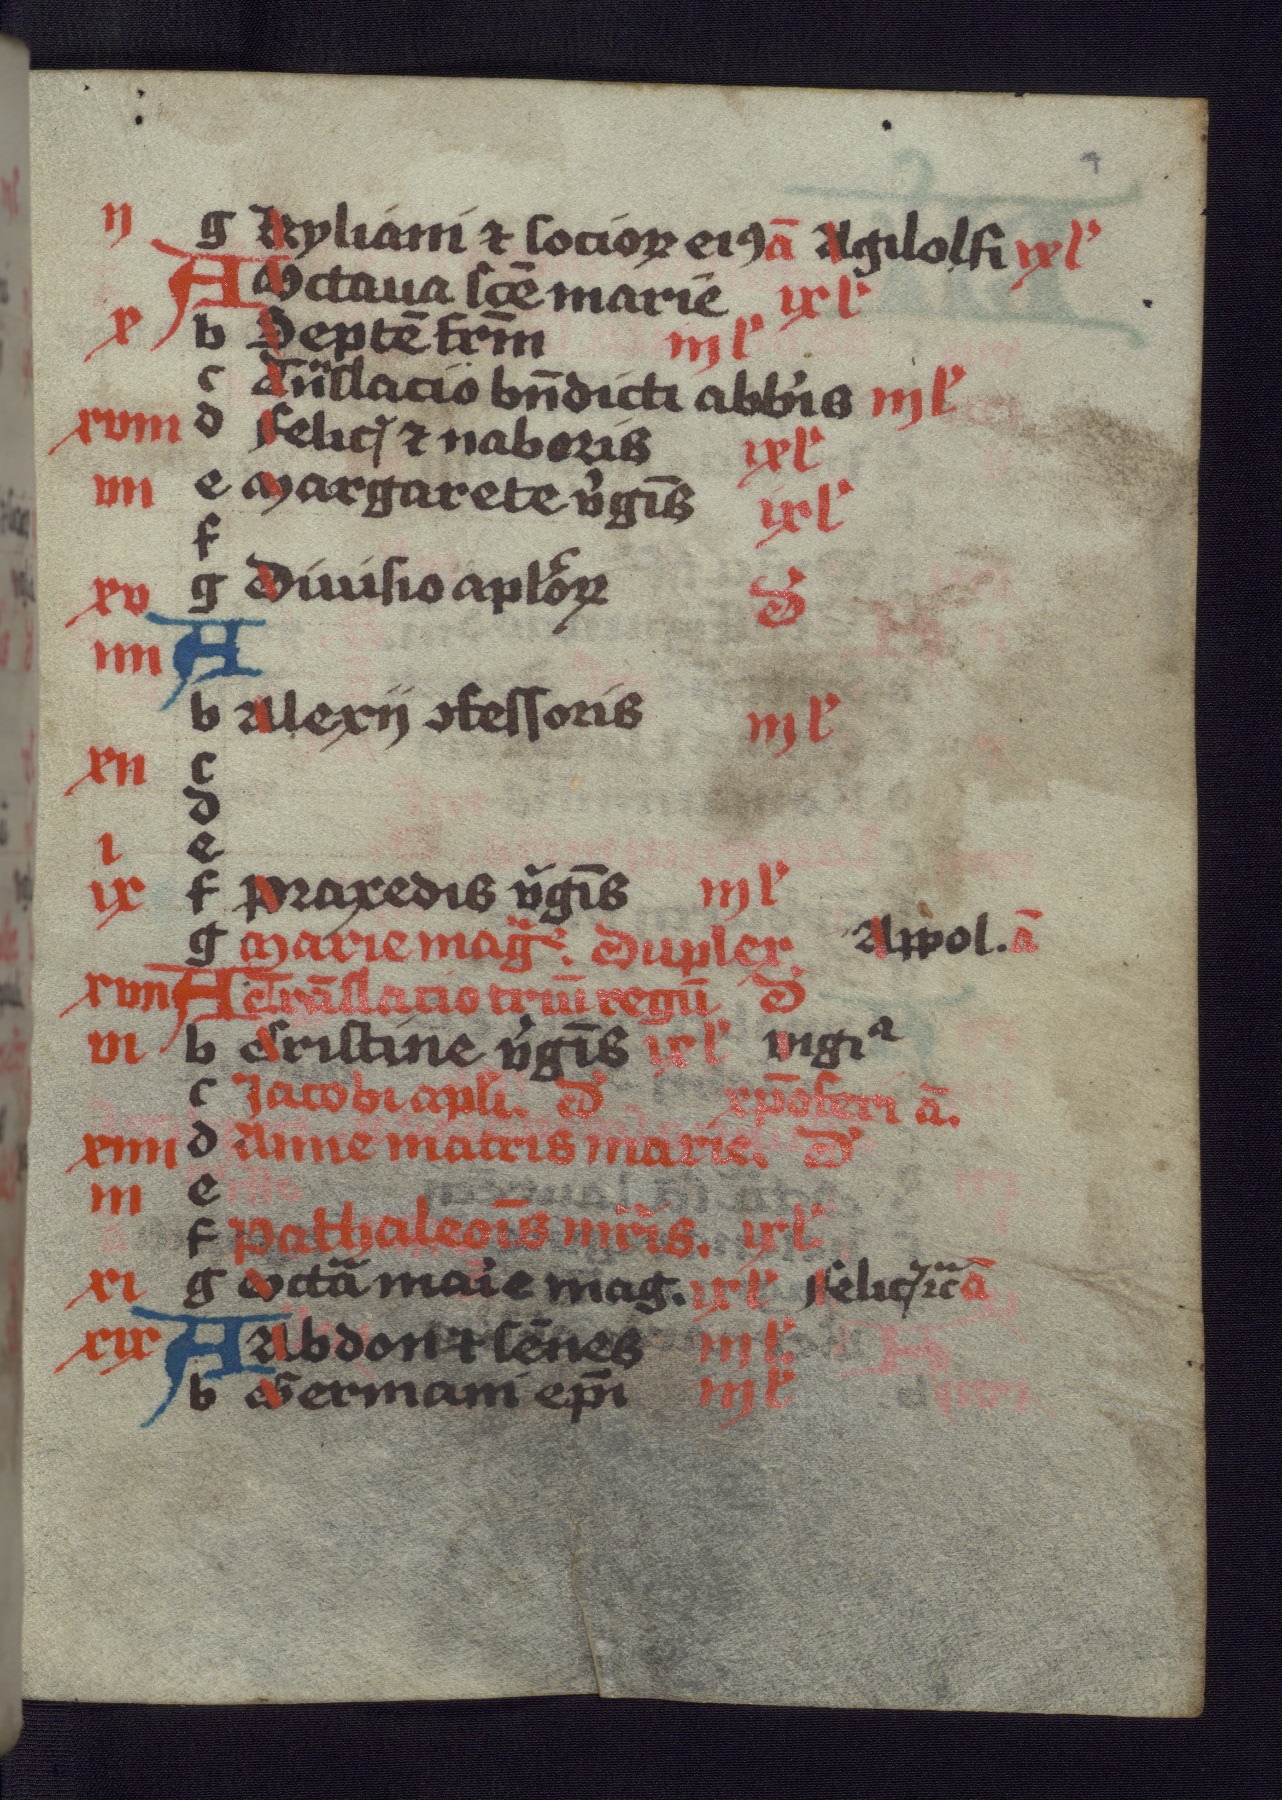 ij g Kyliani ⁊ socioꝝ eiꝰ ā Agilolfi ixl'
A Octaua scē marie ixl'
x b Septē frm̄ iijl'
c Trn̄slacio bn̄dicti abb'is iijl'
xviij d Felicꝭ ⁊ naboris ixl'
vij e Margarete v'gīs ixl'
f
xv g Diuisio aplōꝝ d'
iiij A
b Alexij ꝯfessoris iijl'
xij c
d
i e
ix f Praxedis v'gīs iijl'
g Marie mag'e. Duplex Appol. ā
xvij A Trāslacio triū regū d'
vi b Cristine v'gīs ixl' vigiᵃ
c Jacobi apli. d' xp̄oferi ā.
xiiij d Anne matris marie. d'
iij e
f Pathaleoīs mr'is. ixl'
xi g Octā mar'ie mag. ixl' Felicꝭ ā
xix A Abdon ⁊ sēnes iijl'
b Germani ep̄i iijl'